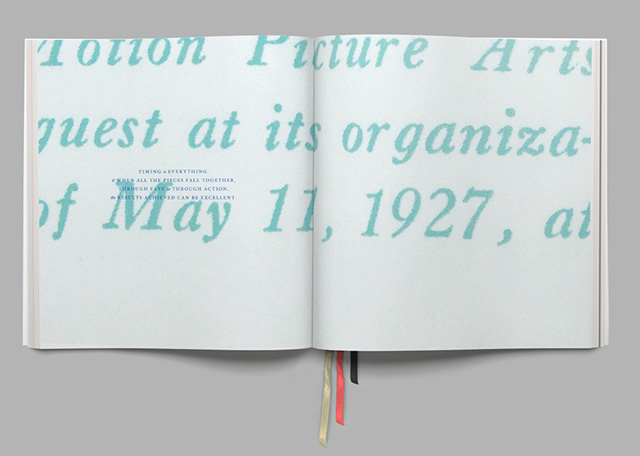 Motion Picture Arts
guest at its organiza-
of May 11, 1927, at
TIMING is EVERYTHING.
& WHEN ALL THE PIECES FALL TOGETHER,
THROUGH FATE or THROUGH ACTION,
the RESULTS ACHIEVED CAN BE EXCELLENT.